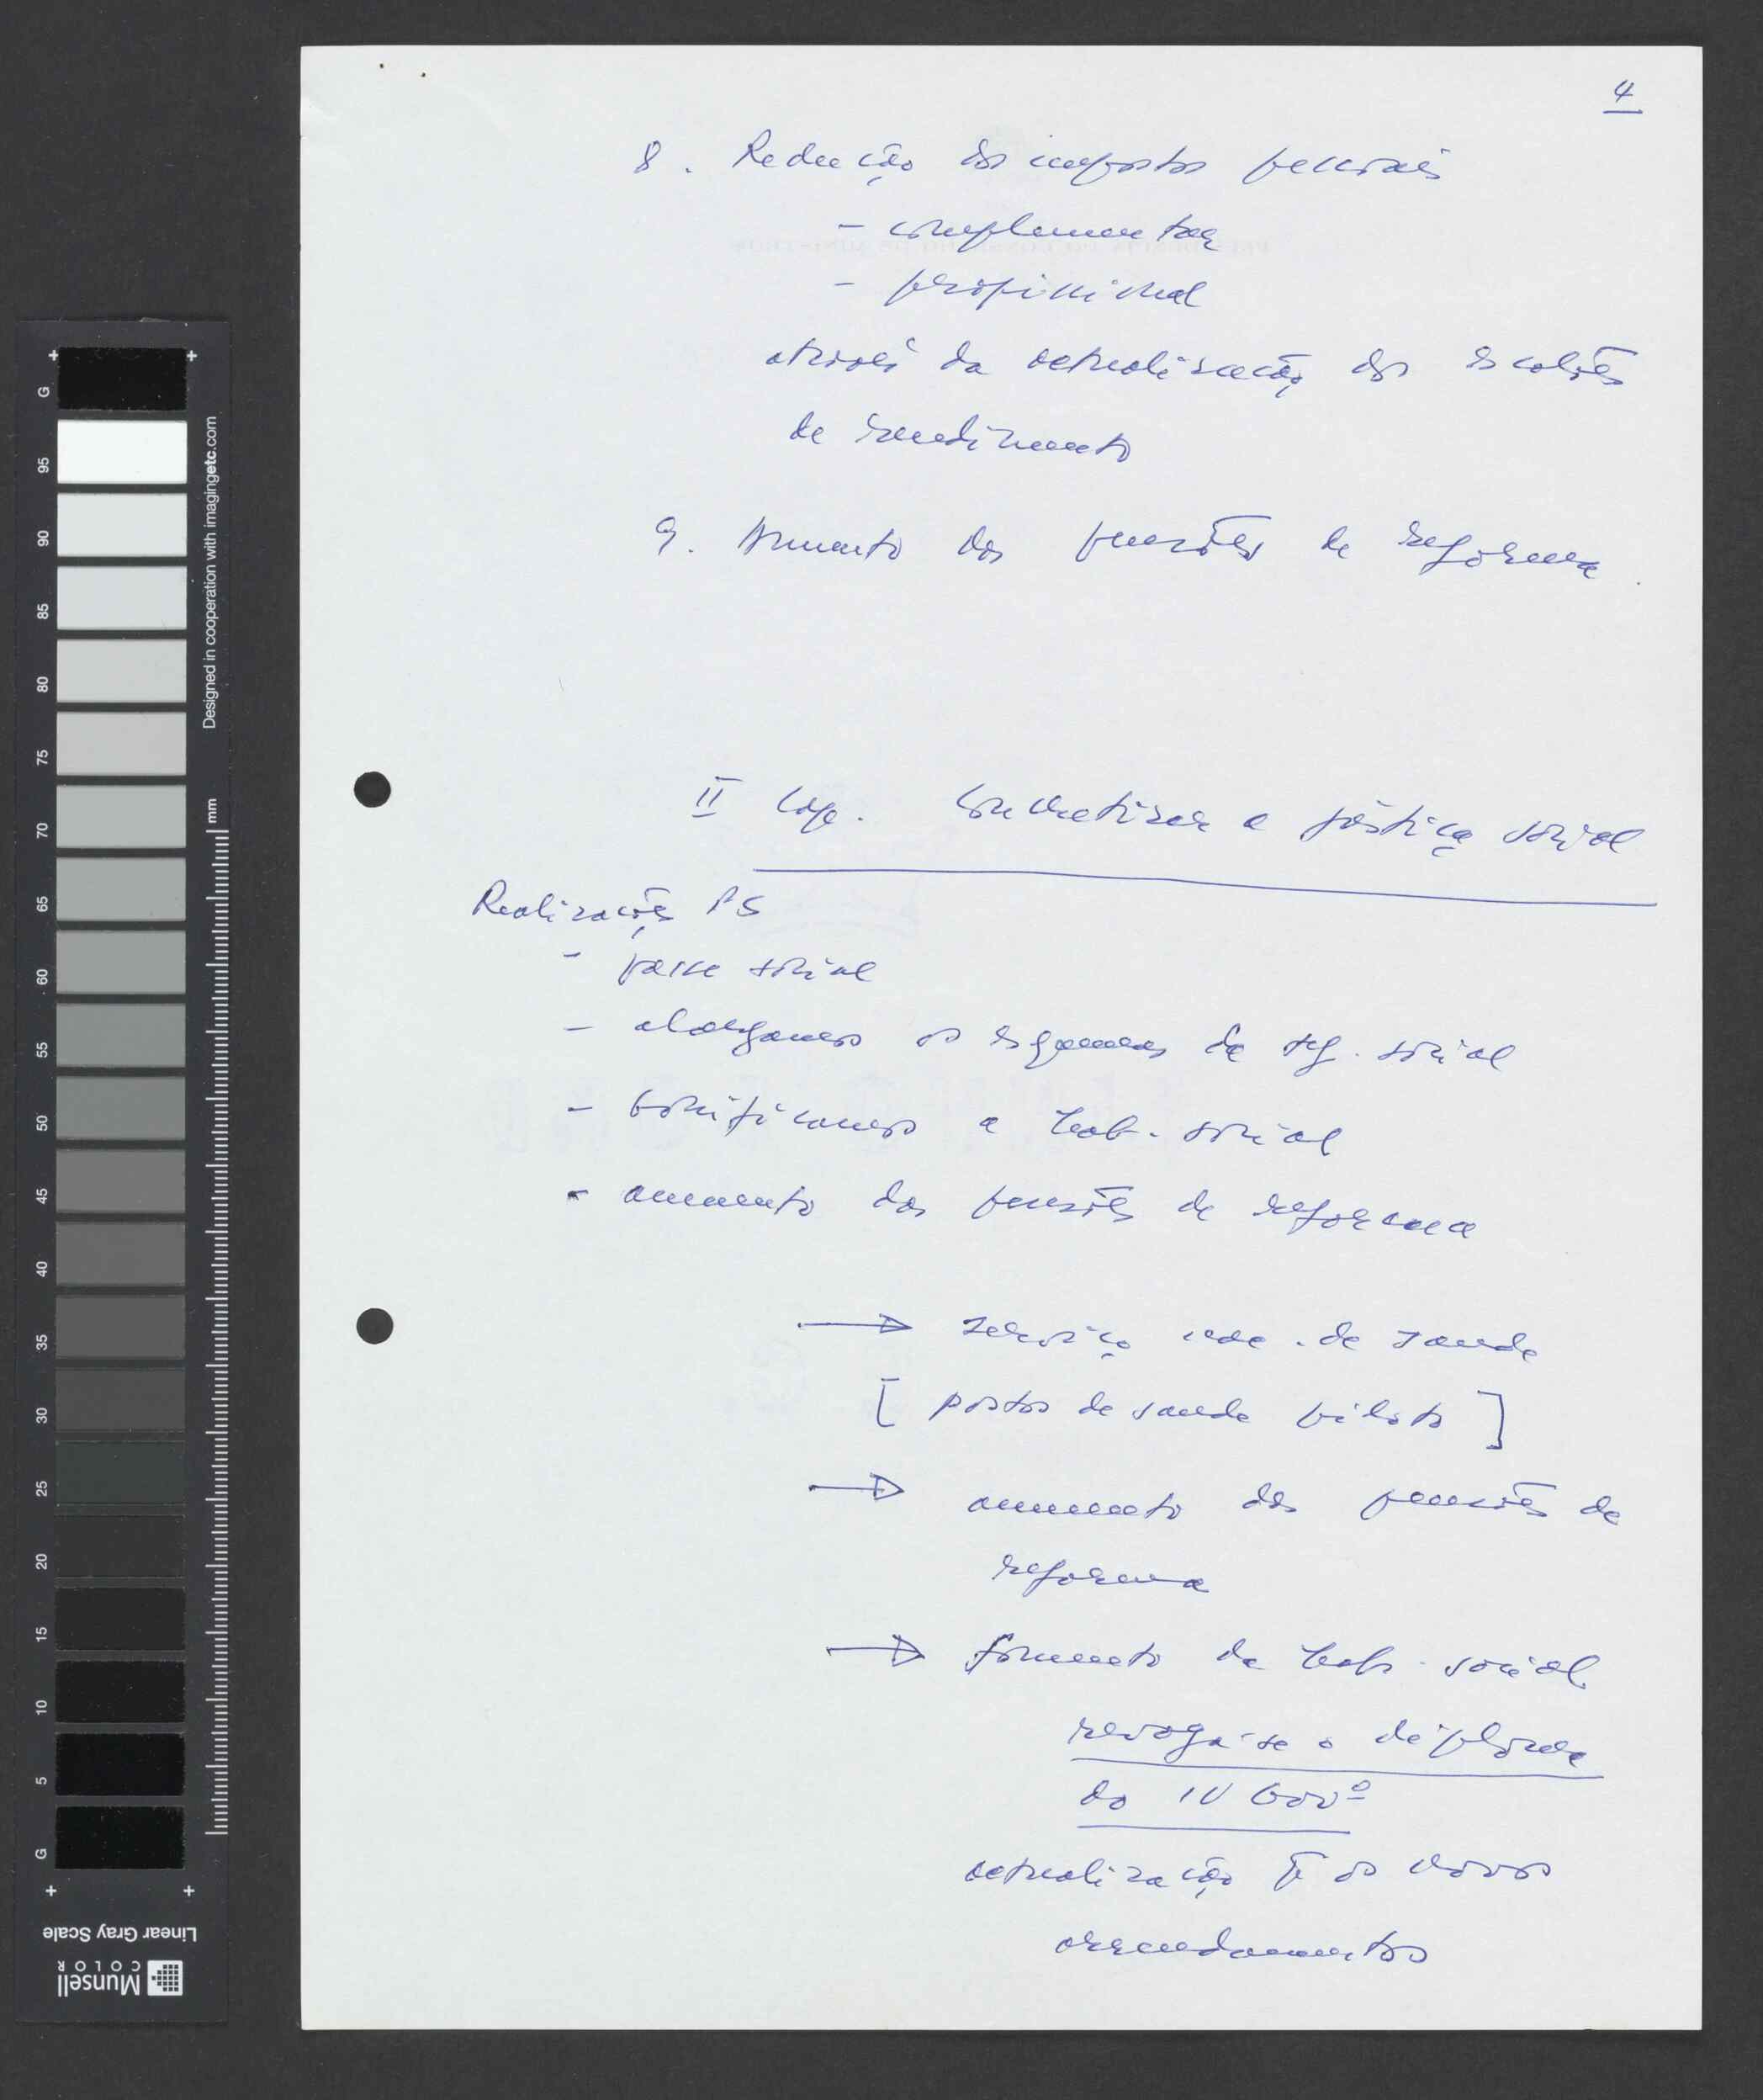 4
8. Redução dos impostos pessoais
- complementar
- profissional
através da actualização dos escalões
de rendimento
9. Aumento das pensões de reforma.
II Cap. Concretizar a justiça social
Realizações PS
- passe social
- alargamos os esquemas da seg. social
- bonificamos a hab. social
- aumento das pensões de reforma
→ serviço nac. de saude
[ postos de saude piloto ]
→ aumento das pensões de
reforma
→ fomento da hab. social
revoga-se o diploma
do IV Govº
actualização p os novos
arrendamentos
G
95
90
85
80
75
70
65
60
55
50
45
40
35
30
25
20
15
10
5
G
Designed in cooperation with imagingetc.com
mm
Linear Gray Scale
Munsell
COLOR